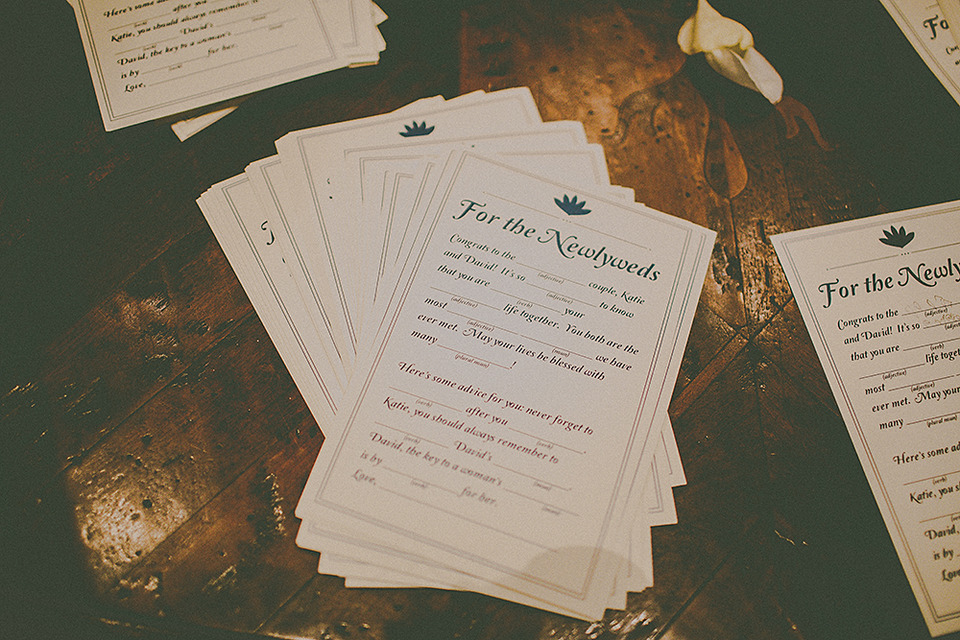 Here's some advice
after you
Katie, you should always remember to
(verb)
David's
David, the key to a woman's
is by
(verb)
for her.
Love,
For the Newlyweds
Congrats to the ______ couple, Katie
(adjective)
and David! It's so ______ to know
(adjective)
that you are ______ your
(verb)
______ life together. You both are the
(adjective)
most ______ ______ we have
(adjective) (noun)
ever met. May your lives be blessed with
many ______!
(plural noun)
Here's some advice for you: never forget to
______ after you ______.
(verb) (verb)
Katie, you should always remember to
______ David's ______.
(verb) (noun)
David, the key to a woman's ______
(noun)
is by ______ for her.
(verb)
Love,
For the Newly
Congrats to the
(adjective)
and David! It's so
that you are
(verb)
life toget
(adjective)
most
(adjective)
ever met. May your
many
(plural noun)
Here's some ad
(verb)
Katie, you sh
David,
is by
Love
Fo